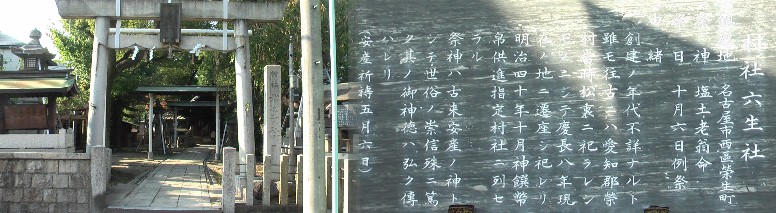 村社六生社
鎮座地 名古屋市西區榮生町
祭神 塩土老翁命
祭日 十月六日例祭
由緒
創建ノ年代不詳ナルト
雖モ往古ニハ愛知郡榮
村字時松裏ニ祀ラレシ
モノニシテ慶長八年現
在ノ地ニ遷座シ祀レリ
明治四十年十月神饌幣
帛供進指定村社ニ列セ
ラル
祭神ハ古来安産ノ神ト
シテ世俗ノ崇信殊ニ篤
ク其ノ御神徳ハ弘ク傳
ハレリ
安産祈祷五月六日）